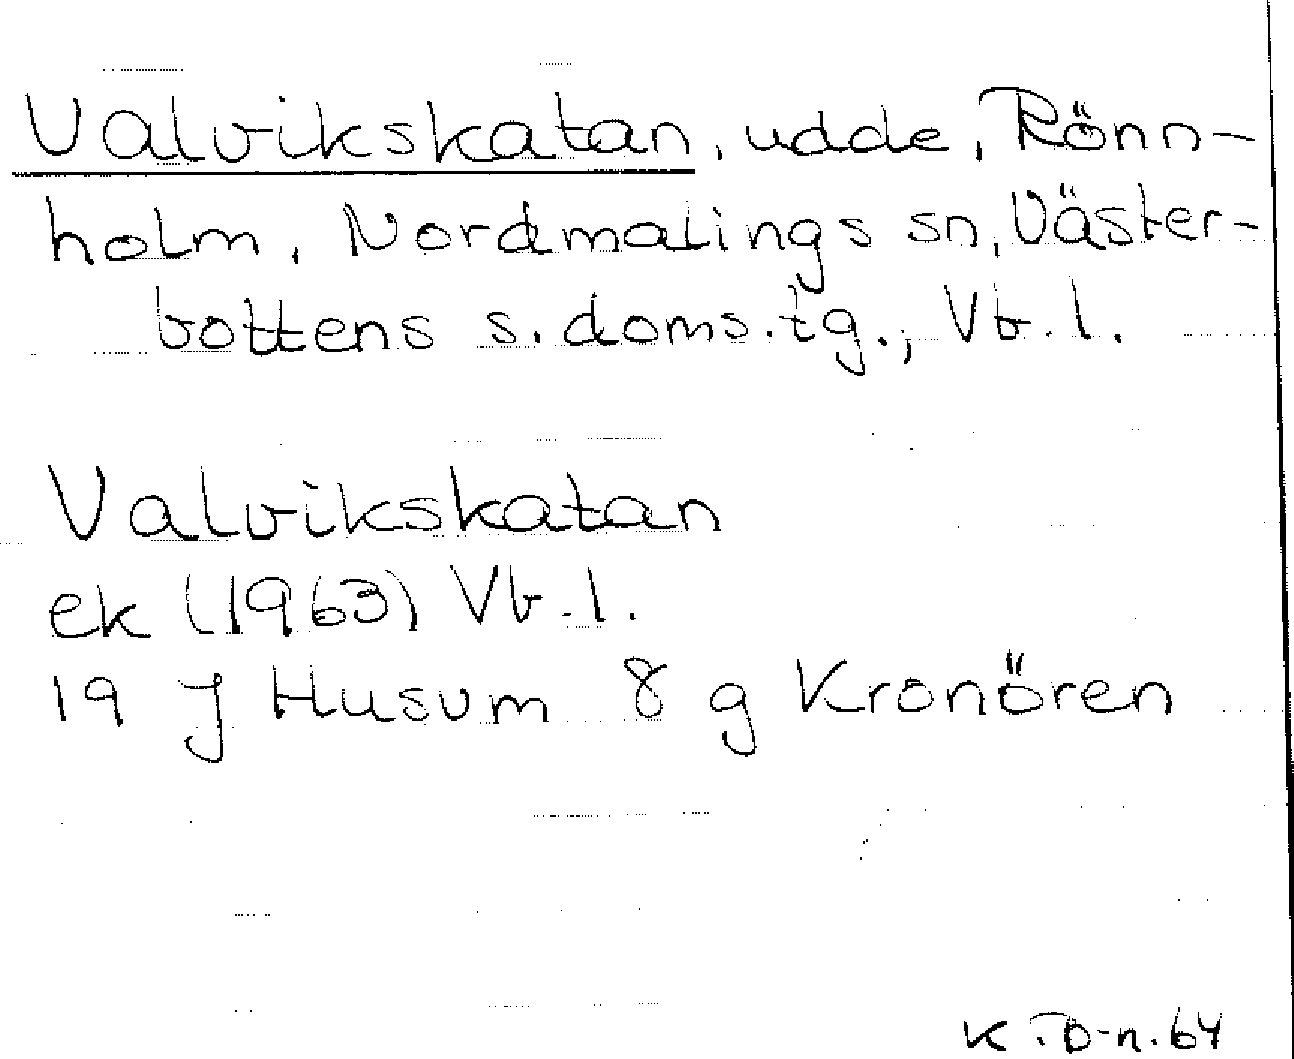 Valvikskatan, udde, Rönn-
holm, Nordmalings sn, Väster-
bottens s. doms.tg., Vb. l.
Valvikskatan
ek (1963) Vb. l.
19 J Husum 8 g Kronören
K. D-n. 64